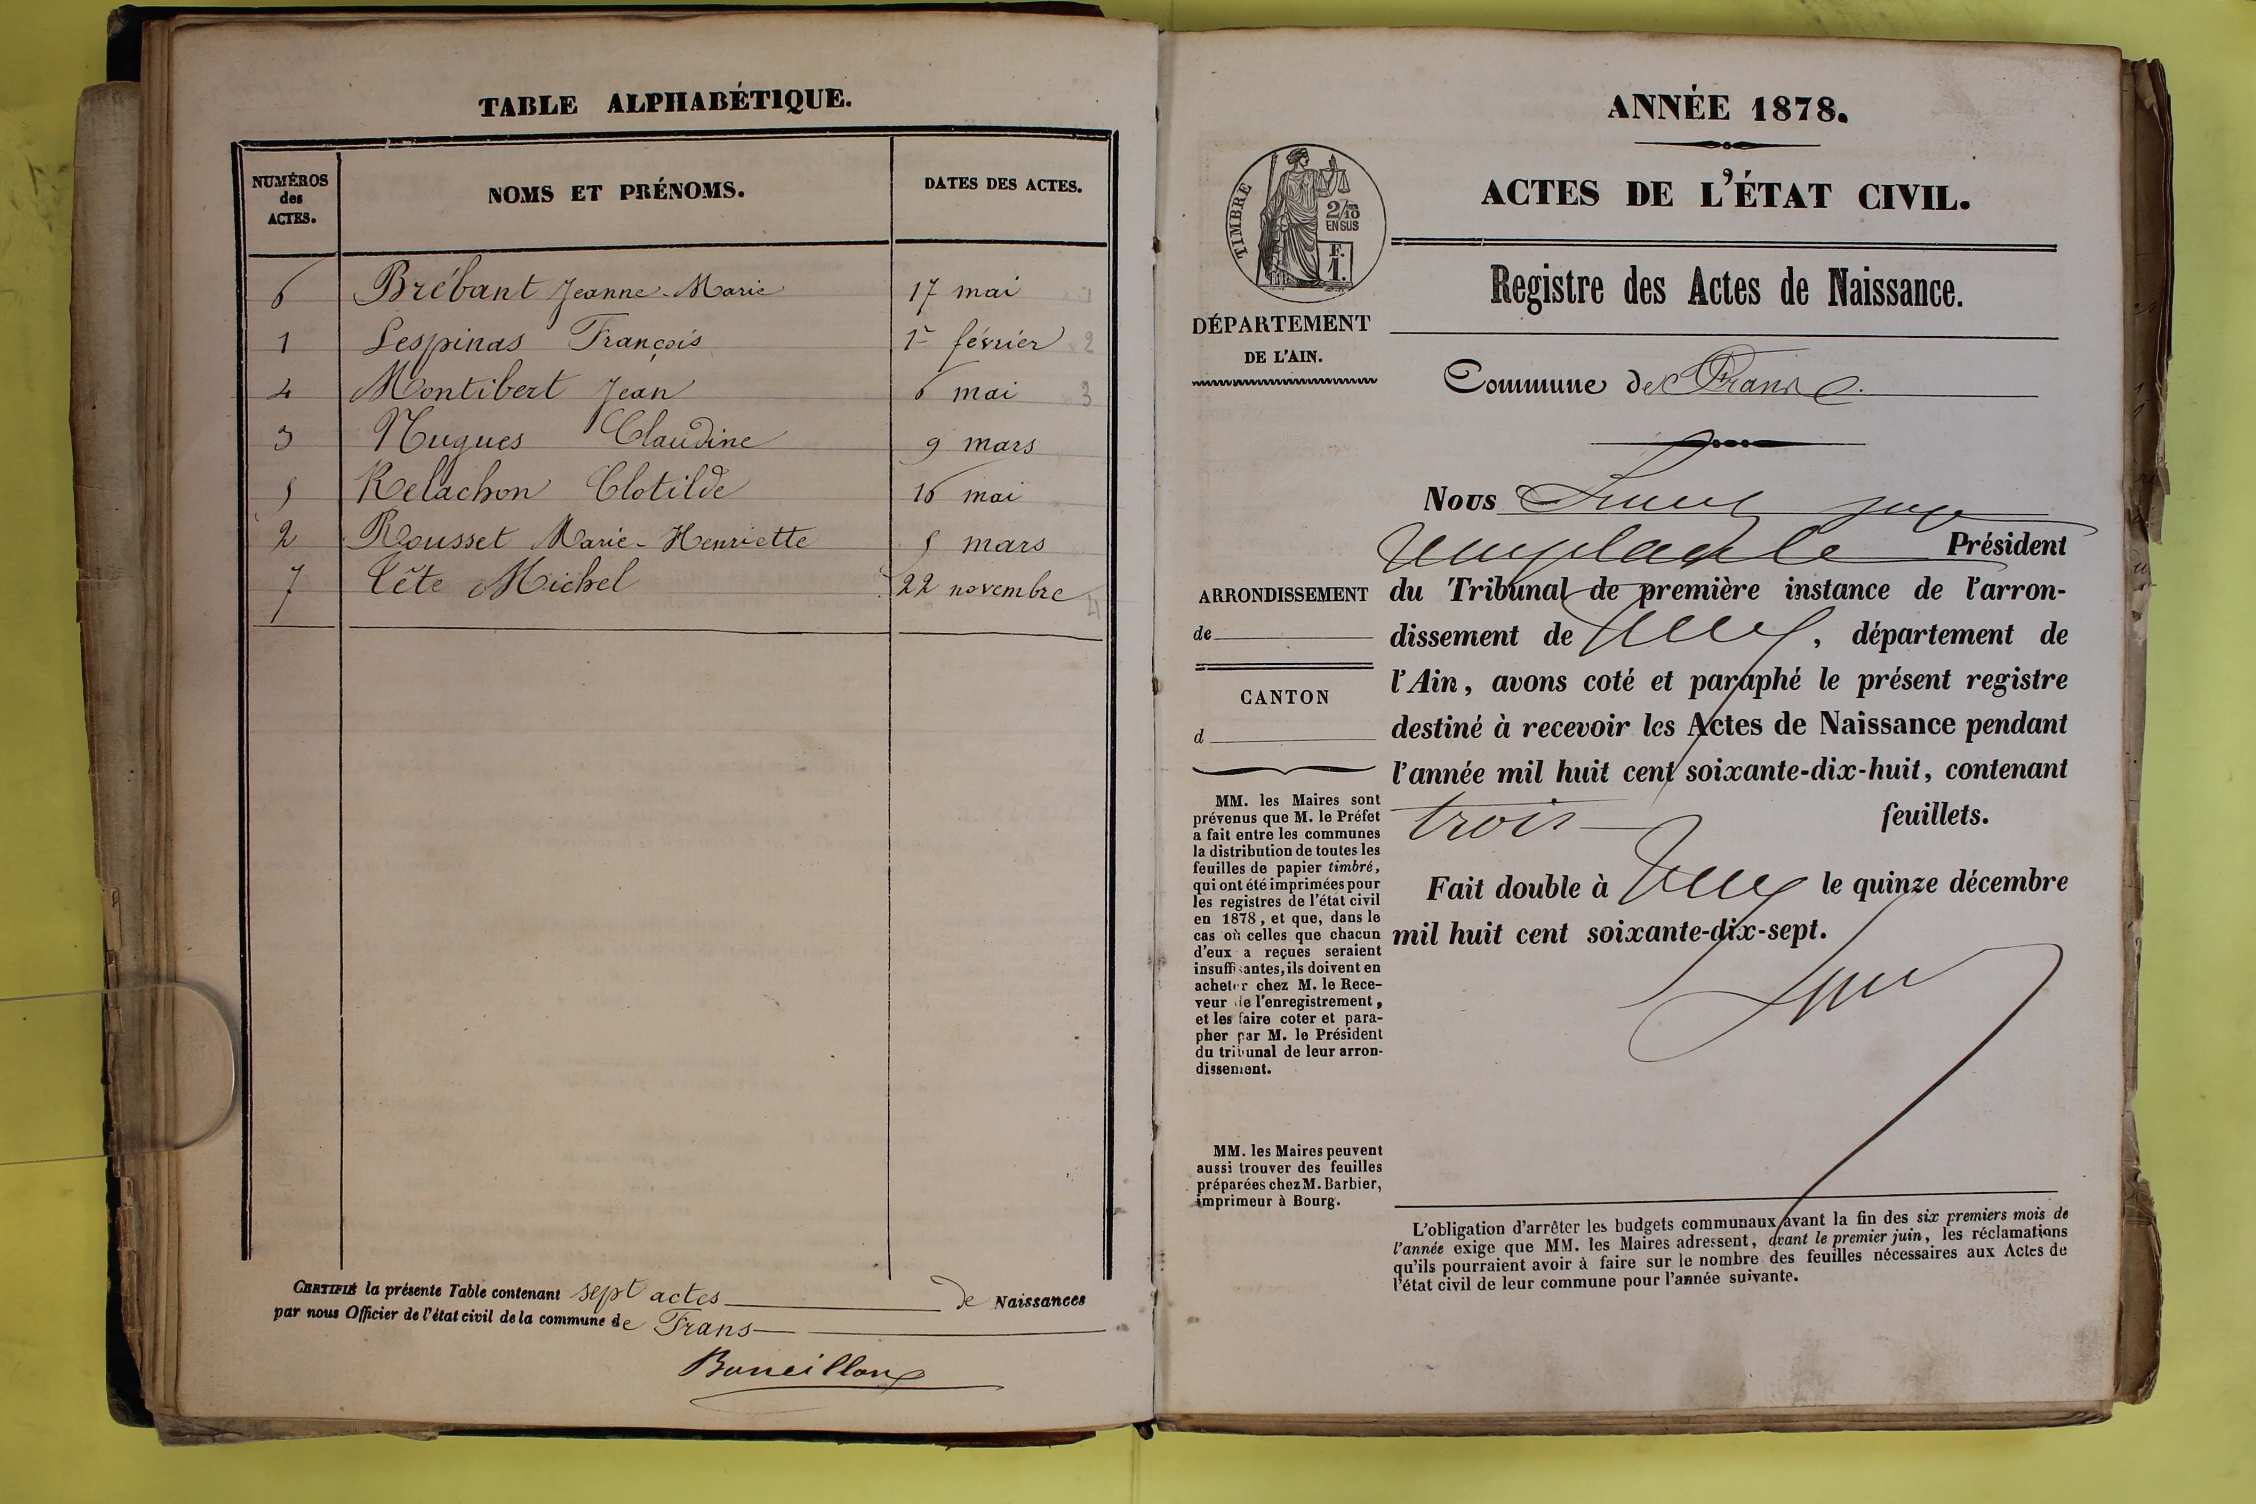 TABLE ALPHABÉTIQUE.
NUMÉROS des ACTES. NOMS ET PRÉNOMS. DATES DES ACTES.
6 Brébant Jeanne-Marie 17 mai
1 Lespinas François 1er février 2
4 Montibert Jean 6 mai 3
3 Nugues Claudine 9 mars
5 Relachon Clotilde 16 mai
2 Rousset Marie-Henriette 5 mars
7 Tête Michel 22 novembre 4
CERTIFIÉ la présente Table contenant sept actes de Naissances
par nous Officier de l'état civil de la commune de Frans
ANNÉE 1878.
ACTES DE L'ÉTAT CIVIL.
TIMBRE
2/10
EN SUS
F.
1.
Registre des Actes de Naissance.
DÉPARTEMENT
DE L'AIN.
Commune de Frans
Nous juge
Président
ARRONDISSEMENT
de
CANTON
d
du Tribunal de première instance de l'arron-
dissement de , département de
l'Ain, avons coté et paraphé le présent registre
destiné à recevoir les Actes de Naissance pendant
l'année mil huit cent soixante-dix-huit, contenant
trois feuillets.
Fait double à le quinze décembre
mil huit cent soixante-dix-sept.
MM. les Maires sont
prévenus que M. le Préfet
a fait entre les communes
la distribution de toutes les
feuilles de papier timbré,
qui ont été imprimées pour
les registres de l'état civil
en 1878, et que, dans le
cas où celles que chacun
d'eux a reçues seraient
insuffisantes, ils doivent en
acheter chez M. le Rece-
veur de l'enregistrement,
et les faire coter et para-
pher par M. le Président
du tribunal de leur arron-
dissement.
MM. les Maires peuvent
aussi trouver des feuilles
préparées chez M. Barbier,
imprimeur à Bourg.
L'obligation d'arrêter les budgets communaux avant la fin des six premiers mois de
l'année exige que MM. les Maires adressent, avant le premier juin, les réclamations
qu'ils pourraient avoir à faire sur le nombre des feuilles nécessaires aux Actes de
l'état civil de leur commune pour l'année suivante.